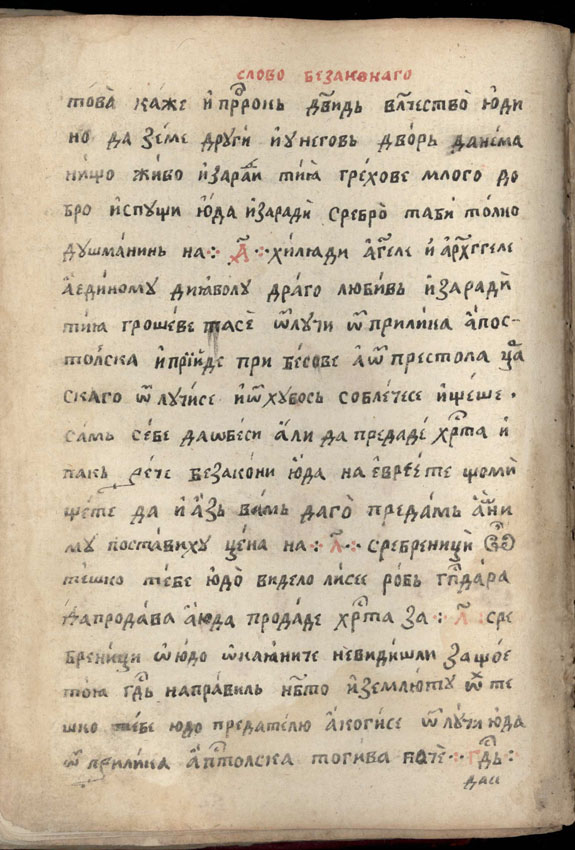 слово безаконаго
това̀ каже и҆ прⷪ҇рокь дв҃идь влⷣчество̀ ю҆ди
но даземе другїи и҆ у негѡвь дворь да нема
нищо живо и҆ заради̑ тиꙗ̀ грѣхове млого до
бро и҆спущи ю҆да и҆ заради̑ сребро̀ таби̏ толко
душманинь на ⁘ л҃ ⁘ хилюди а҆г҃геле и҆ а҆рха҃ггеле
а҆ единому диꙗволу драго любивь и҆ заради̑
тиꙗ грошеве та се̏ ѿлучи ѿ прилика а҆пос-
толска и҆ прїи̑де при бѣсове а҆ ѿ престола цр҃
скаго ѿлучисе и҆ ѿ хубось соблечесе и҆ щеше ·
самь себе да ѡбеси а҆ли да предаде хрⷭ҇та и҆
пакь рече безакони ю҆да на еврѣете що ми̏
щете да и҆ а҆зь вамь даго̀ предамь а҆ ѡ҆ни
му поставиху цѣна на ⁘ л҃ ⁘ сребреници̏
тешко тебе ю҆до̀ видело ли се е робь гпⷭ҇дара
да продава а҆ ю҆да продаде хрⷭ҇та за ⁘ л҃ ⁘ сре
бреници ѽ ю҆до ѽкаꙗниче не видиш ли защо е
тоꙗ гдⷭ҇ь направиль нб҃то и҆ землюту ѽ те
шко тебе юдо предателю а҆ когисе ѿлучи ю҆да
ѿ прилика а҆пⷭ҇толска тогива рече ⁘ гдⷭ҇ь ⁘
даи